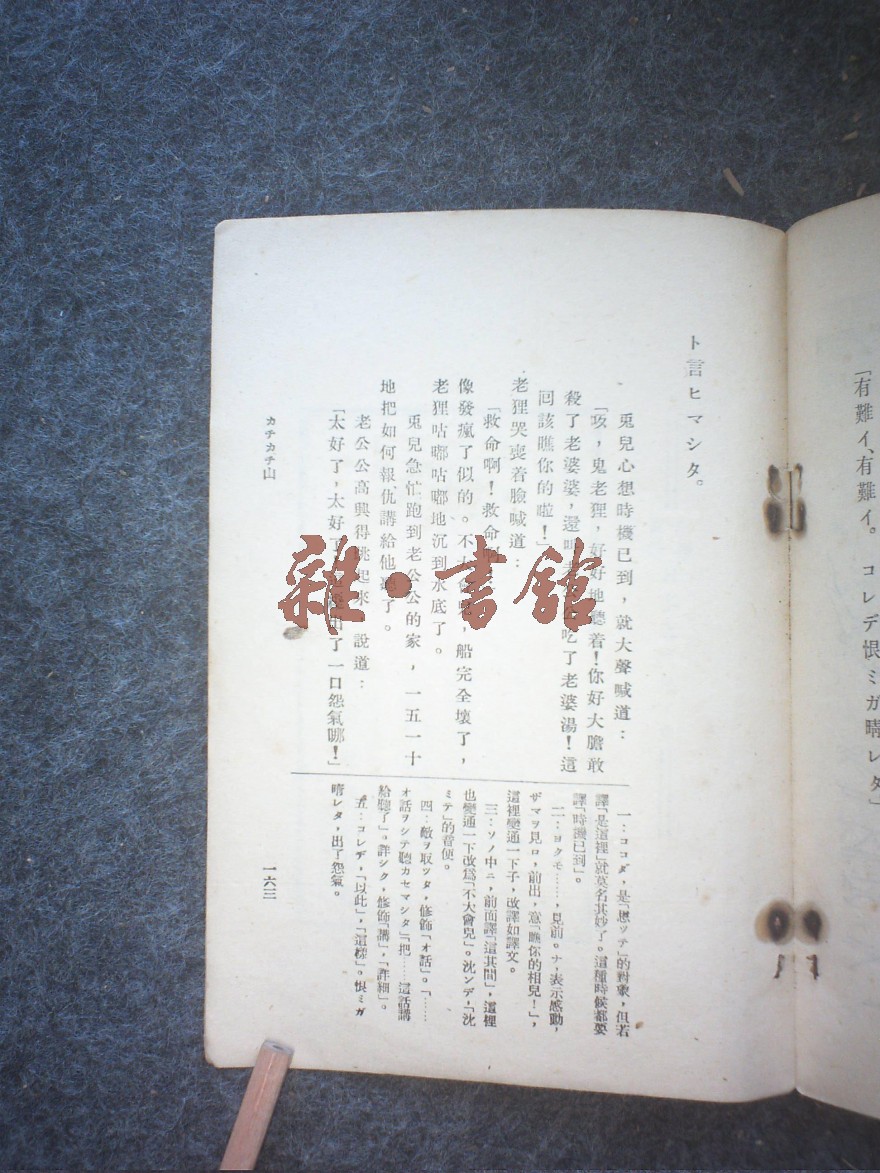 「有難イ、有難イ。 コレデ恨ミガ晴レタ」
ト言ヒマシタ。
兎兒心想時機已到，就大聲喊道：
「咳，鬼老狸，好好地聽着！你好大膽敢
殺了老婆婆，還 吃了老婆湯！這
囘該瞧你的啦！」
老狸哭喪着臉喊道：
「救命啊！救命
像發瘋了似的。不 ，船完全壞了，
老狸咕嘟咕嘟地沉到水底了。
兎兒急忙跑到老公公的家，一五一十
地把如何報仇講給他 了。
老公公高興得跳起來，說道：
「太好了，太好了 了一口怨氣哪！」
一：ココダ，是「思ッテ」的對象，但若
譯「是這裡」就莫名其妙了。這種時候都要
譯「時機已到」。
二：ヨクモ……，見前。ナ，表示感動，
ザマヲ見ロ，前出，意「瞧你的相兒！」，
這裡變通一下子，改譯如譯文。
三：ソノ中ニ，前面譯「這其間」，這裡
也變通一下改爲「不大會兒」。沈ンデ，「沈
ミテ」的音便。
四：敵ヲ取ッタ，修飾「オ話」。「……
オ話ヲシテ聽カセマシタ」「把……這話講
給聽了」。詳シク，修飾「講」，「詳細」。
五：コレデ，「以此」，「這樣」。恨ミガ
晴レタ，出了怨氣。
カチカチ山
一六三
雜·書館